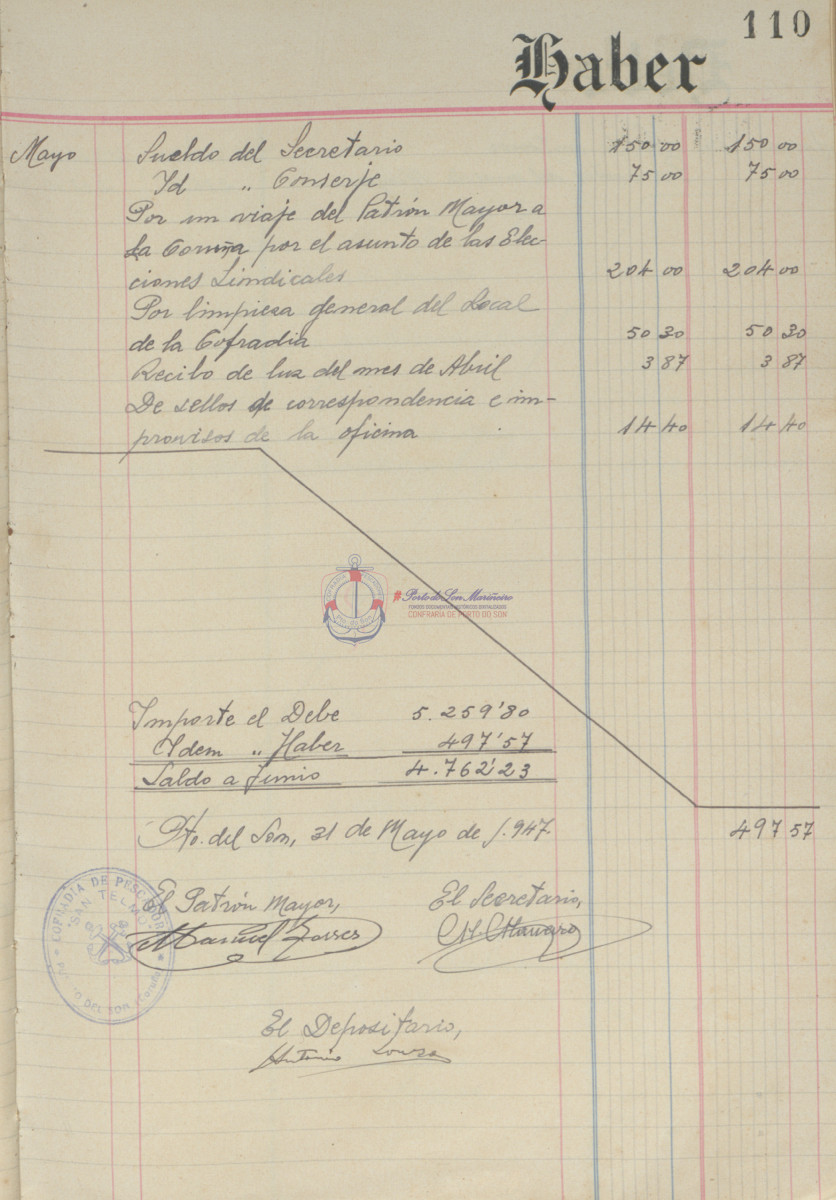 110
Haber
Mayo Sueldo del Secretario 150 00 150 00
Id „ Conserje 75 00 75 00
Por un viaje del Patrón Mayor a
La Coruña por el asunto de las Elec-
ciones Sindicales 204 00 204 00
Por limpieza general del Local
de la Cofradia 50 30 50 30
Recibo de luz del mes de Abril 3 87 3 87
De sellos de correspondencia e im-
provisos de la oficina 14 40 14 40
#Porto do Son Mariñeiro
FONDOS DOCUMENTAIS HISTÓRICOS DIXITALIZADOS
CONFRARÍA DE PORTO DO SON
Importe el Debe 5.259'80
Idem „ Haber 497'57
Saldo a Junio 4.762'23
Pto. del Son, 31 de Mayo de 1.947
497 57
El Patrón Mayor, El Secretario,
Manuel Torres
COFRADIA DE PESCADORES
"SAN TELMO"
DEL SON
El Depositario,
Antonio